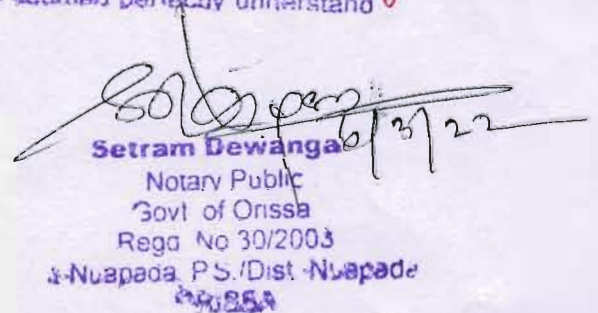 perfectly understand
6/3/22
Setram Dewanga
Notary Public
Govt of Orissa
Regd No 30/2003
Nuapada P.S./Dist-Nuapada